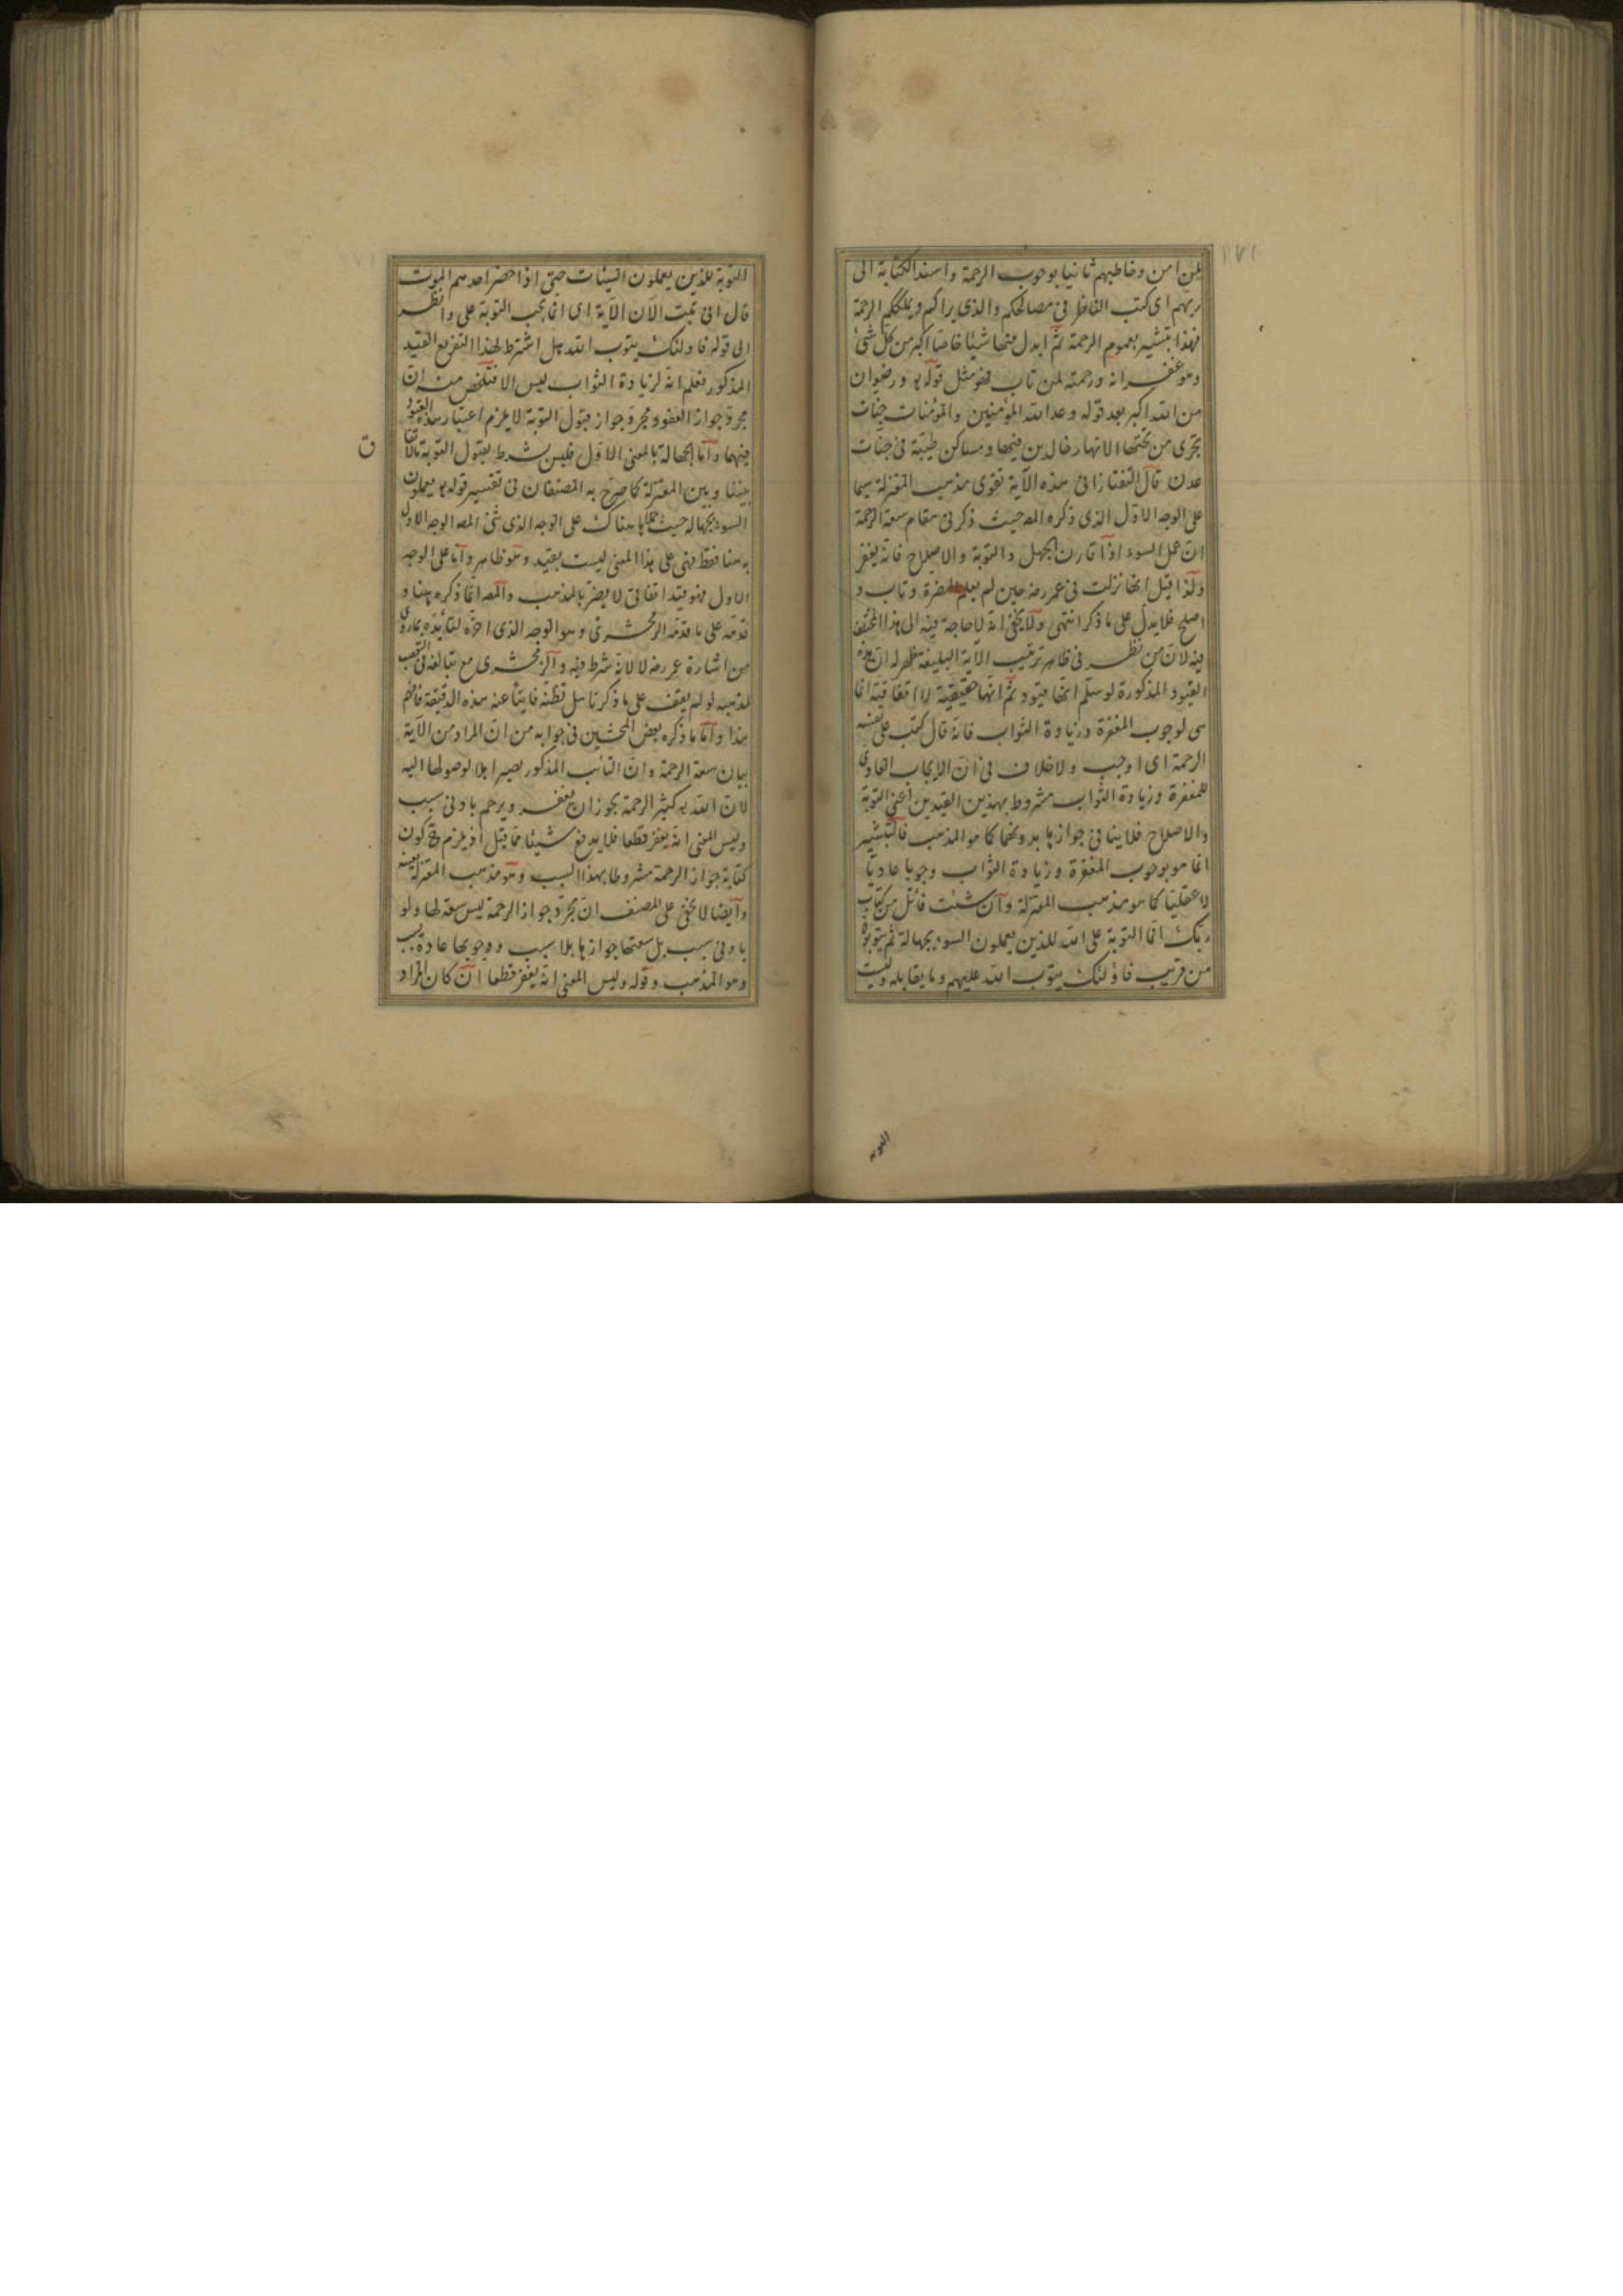 ١٧١
لمن امن وخاطبهم ثانيا بوجوب الرحمة واسند الكتابة الى
ربهم اى كتب الناظر فى مصالحكم والذى يراكم ويملككم الرحمة
فهذا تبشير بعموم الرحمة ثم ابدل منها شيئا خاصا اكبر من كل شئ
وهو غفرانه ورحمته لمن تاب فهو مثل قوله تع ورضوان
من الله اكبر بعد قوله وعد الله المؤمنين والمؤمنات جنات
تجرى من تحتها الانهار خالدين فيها ومساكن طيبة فى جنات
عدن قال التفتازانى هذه الآية تقوى مذهب المعتزلة سيما
على الوجه الاول الذى ذكره المص حيث ذكر فى مقام سعة الرحمة
ان عمل السوء اذا قارن الجهل والتوبة والاصلاح فانه يغفر
ولذا قيل انها نزلت فى عمر رضه حين لم يعلم المضرة وتاب و
اصلح فلا يدل على ما ذكر انتهى ولا يخفى انه لا حاجة فيه الى هذا
فيه لان من نظر فى ظاهر ترتيب الآية البليغة ظهر له ان هذه
القيود المذكورة لو سلم انها قيود ثم انها حقيقية لا اتفاقية انما
هى لوجوب المغفرة وزيادة الثواب فانه قال كتب على نفسه
الرحمة اى اوجب ولا خلاف فى ان الايجاب العادى
للمغفرة وزيادة الثواب مشروط بهذين القيدين اعنى التوبة
والاصلاح فلا ينافى جوازها بدونهما كما هو المذهب فالتبشير
انما هو بوجوب المغفرة وزيادة الثواب وجوبا عاديا
لا عقليا كما هو مذهب المعتزلة وان شئت فاتل من كتاب
ربك انما التوبة على الله للذين يعملون السوء بجهالة ثم يتوبون
من قريب فاولئك يتوب الله عليهم وما يقابله وليست
التوبة
التوبة للذين يعملون السيئات حتى اذا حضر احدهم الموت
قال انى تبت الآن الآية اى انما يجب التوبة على وانظر
الى قوله فاولئك يتوب الله هل اشترط لهذا التفريع القيد
المذكور فعلم انه لزيادة الثواب ليس الا فتلخص منه ان
مجرد جواز العفو ومجرد جواز قبول التوبة لا يلزم اعتبار هذه القيود
فيهما واما الجهالة بالمعنى الاول فليس بشرط لقبول التوبة اتفاقا
ق
بيننا وبين المعتزلة كما صرح به المصنفان فى تفسير قوله تع يعملون
السوء بجهالة حيث حملاها هناك على الوجه الذى ثنى المص الوجه الاول
به هنا فقط فهى على هذا المعنى ليست بقيد وهو ظاهر واما على الوجه
الاول فهو قيد اتفاقى لا يضر بالمذهب والمص انما ذكره هنا و
قدمه على ما قدمه الزمخشرى وهو الوجه الذى اخره لتايده بما روى
من اشارة عمر رضه لا لانه شرط فيه والزمخشرى مع تبالغه فى التعصب
لمذهبه لو لم يقف على ما ذكرنا هل تظنه فايتا عنه هذه الدقيقة فافهم
هذا واما ما ذكره بعض المحشين فى جوابه من ان المراد من الآية
بيان سعة الرحمة وان التائب المذكور يصير اهلا لوصولها اليه
لان الله تع كثير الرحمة يجوز ان يغفر ويرحم بادنى سبب
وليس المعنى انه يغفر قطعا فلا يدفع شيئا مما قيل اذ يلزم ح كون
كتابة جواز الرحمة مشروطا بهذا السبب وهو مذهب المعتزلة بعينه
وايضا لا يخفى على المصنف ان مجرد جواز الرحمة ليس سعة لها ولو
بادنى سبب بل سعتها جوازها بلا سبب ووجوبها عادة بسبب
وهو المذهب وقوله وليس المعنى انه يغفر قطعا ان كان المراد